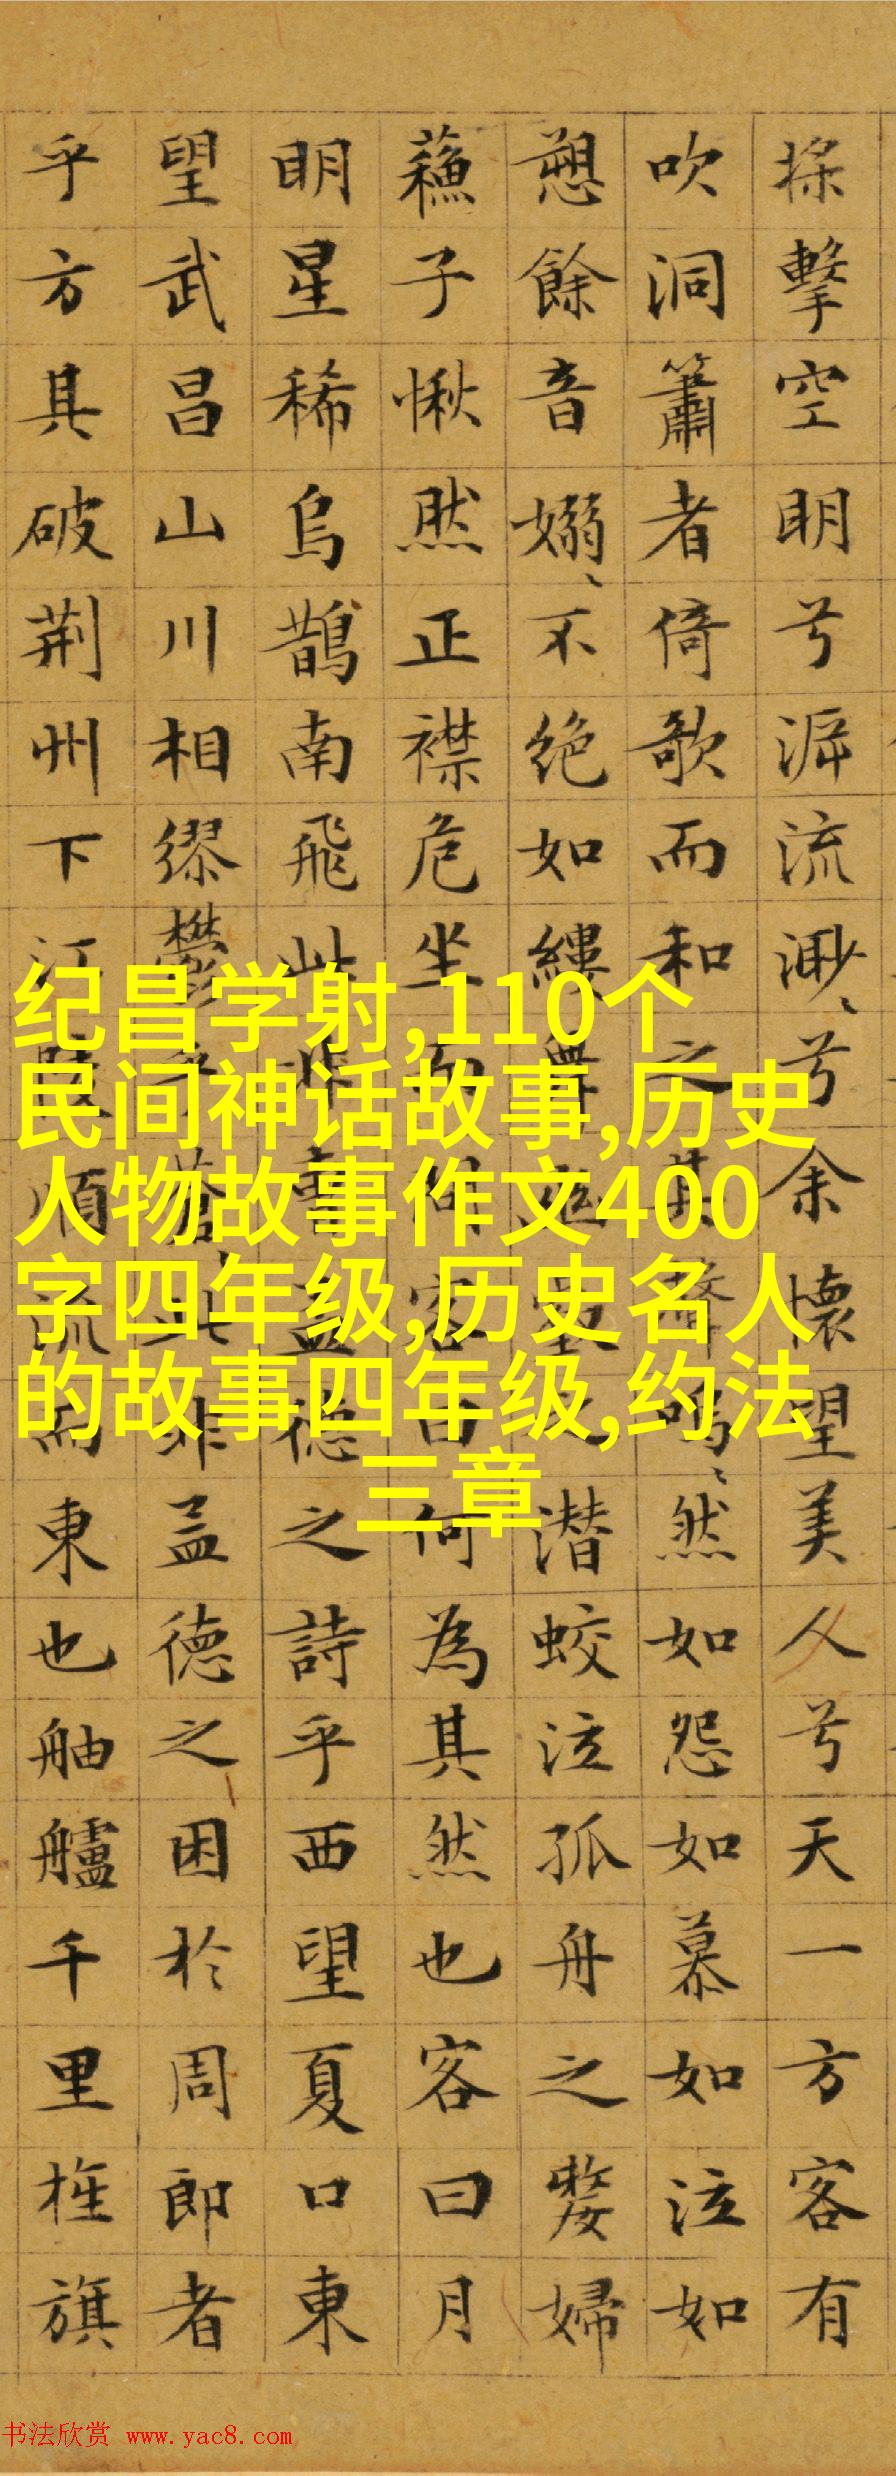 擊空明兮泝流渺〻兮余懷望美人兮天一方客有
吹洞簫者倚歌而和之其聲嗚〻然如怨如慕如泣如
愬餘音嫋〻不絶如縷舞幽壑之潛蛟泣孤舟之嫠婦
蘇子愀然正襟危坐而問客曰何為其然也客曰月
明星稀烏鵲南飛此非曹孟德之詩乎西望夏口東
望武昌山川相繆鬱乎蒼〻此非孟德之困於周郎者
乎方其破荆州下江陵順流而東也舳艫千里旌旗
纪昌学射,110个
民间神话故事,历史
人物故事作文400
字四年级,历史名人
的故事四年级,约法
三章
书法欣赏 www.yac8.com